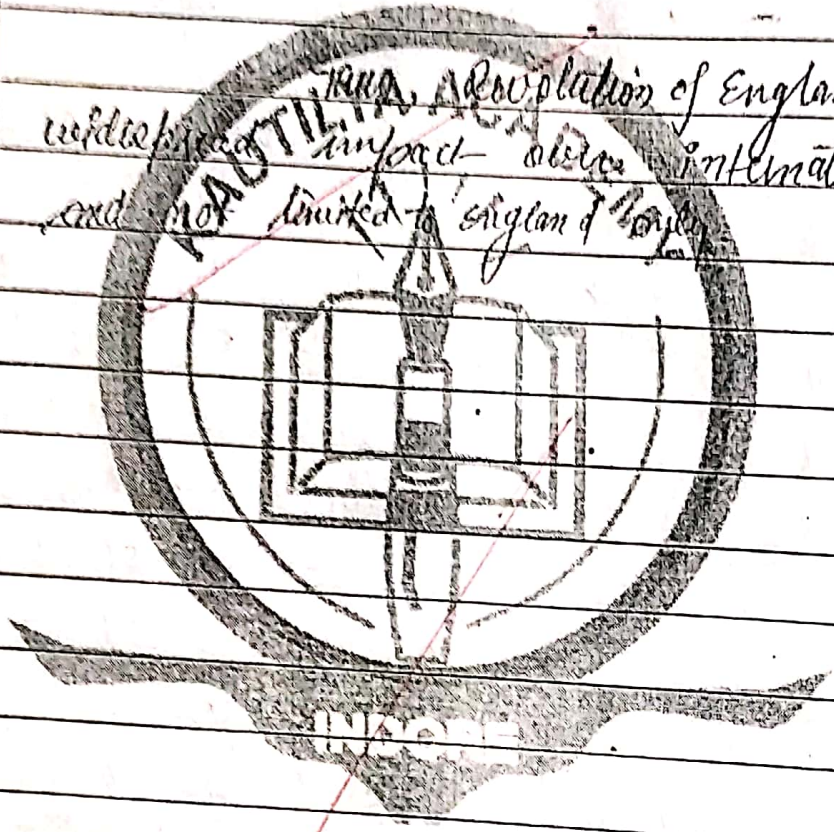 Thus, Revolution of Engla
widespread impact over internat
and not limited to england only
KAUTILYA ACADEMY
INDORE